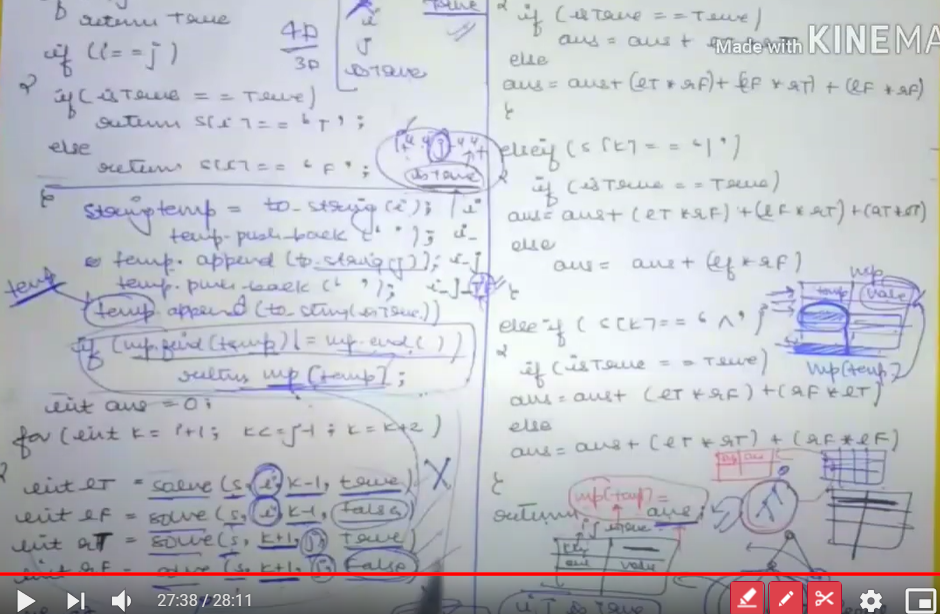 return True
if (i == j)
{
if (isTrue == True)
return s[i] == 'T';
else
return s[i] == 'F';
}
4D
3D
True
i
j
isTrue
isTrue
string temp = to_string(i);
temp.push_back(' ');
temp.append(to_string(j));
temp.push_back(' ');
temp.append(to_string(isTrue))
temp
if (mp.find(temp) != mp.end())
return mp[temp];
int ans = 0;
for (int k = i+1; k<=j-1; k=k+2)
{
int lT = solve(s, i, k-1, true)
int lF = solve(s, i, k-1, false)
int rT = solve(s, k+1, j, True)
int rF = solve(s, k+1, j, False)
{
if (isTrue == True)
ans = ans +
Made with KINEMA
else
ans = ans + (lT * rF) + (lF * rT) + (lF * rF)
}
else if (s[k] == '|')
{
if (isTrue == True)
ans = ans + (lT * rF) + (lF * rT) + (rT * lT)
else
ans = ans + (lf * rF)
}
else if (s[k] == '^')
{
if (isTrue == True)
ans = ans + (lT * rF) + (rF * lT)
else
ans = ans + (lT * rT) + (rF * lF)
}
mp
temp value
mp[temp]
return mp[temp] = ans;
i j isTrue
key
value
i, j isTrue
27:38 / 28:11